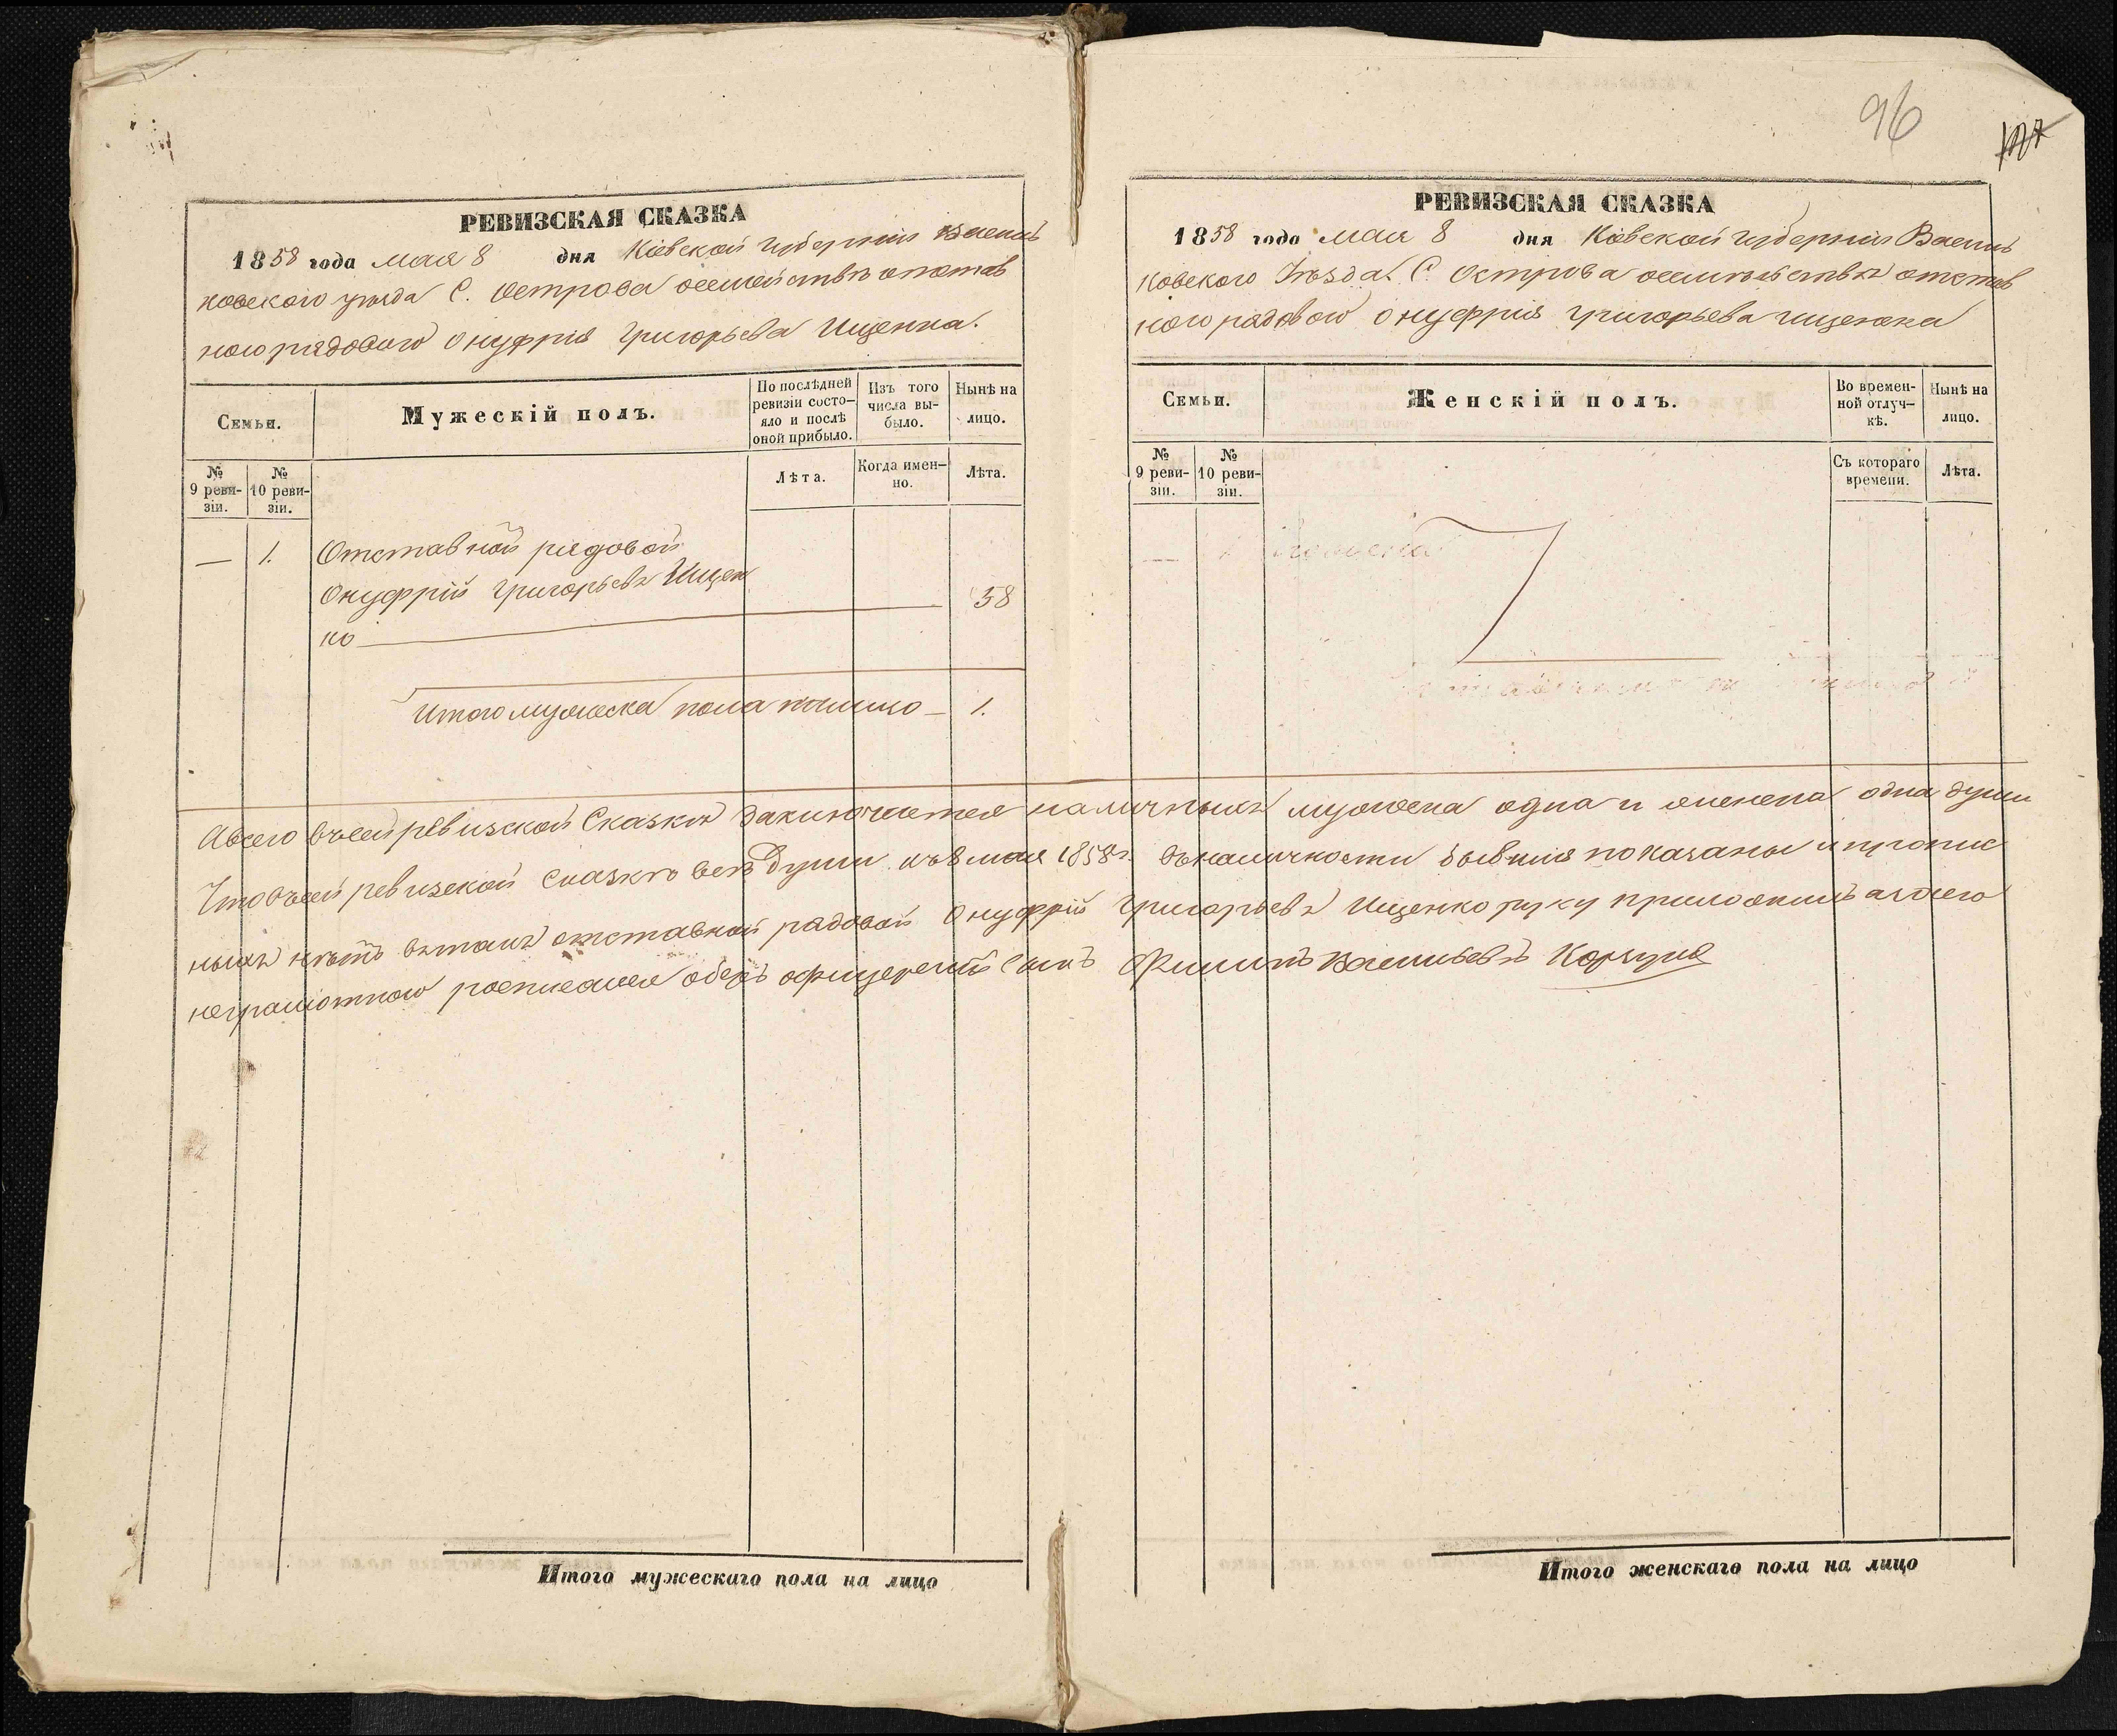 96
РЕВИЗСКАЯ СКАЗКА
1858 года мая 8 дня Кіевской Губерніи Василь
ковского уѣзда С. Острова осемействѣ отстав
ного рядового Онуфрія Григорьева Ищенка.
Семьи.
Мужескій полъ.
По послѣдней ревизіи состо-яло и послѣ оной прибыло.
Изъ того числа вы-было.
Нынѣ на лицо.
№ 9 реви-зіи.
№ 10 реви-зіи.
Лѣта.
Когда имен-но.
Лѣта.
— 1. Отставной рядовой
Онуфрій Григорьевъ Ищен
ко — 58
Итого мужеска пола налицо — 1.
РЕВИЗСКАЯ СКАЗКА
1858 года мая 8 дня Кіевской Губерніи Василь
ковского Уѣзда С. Острова осемѣйствѣ отстав
ного рядового Онуфрія Григорьева Ищенка
Семьи.
Женскій полъ.
Во времен-ной отлуч-кѣ.
Нынѣ на лицо.
№ 9 реви-зіи.
№ 10 реви-зіи.
Съ котораго времени.
Лѣта.
Авсего всей ревизской Сказкѣ заключается наличныхъ мужеска одна и женска одна души
Что въсей ревизской сказкѣ всѣ души къ 8 мая 1858 г. въналичности бывшія показаны и пропис
ныхъ нѣтъ вътомъ отставной рядовой Онуфрій Григорьевъ Ищенко руку приложилъ азаего
неграмотного росписался оберъ офицерскій сынъ Филипъ Васильевъ Корзунъ
Итого мужескаго пола на лицо
Итого женскаго пола на лицо